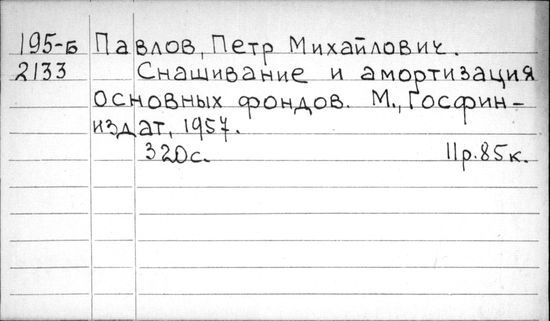 195-Б Павлов, Петр Михайлович.
2133 Снашивание и амортизация
основных фондов. М., Госфин-
издат, 1957.
320с. 11р.85к.